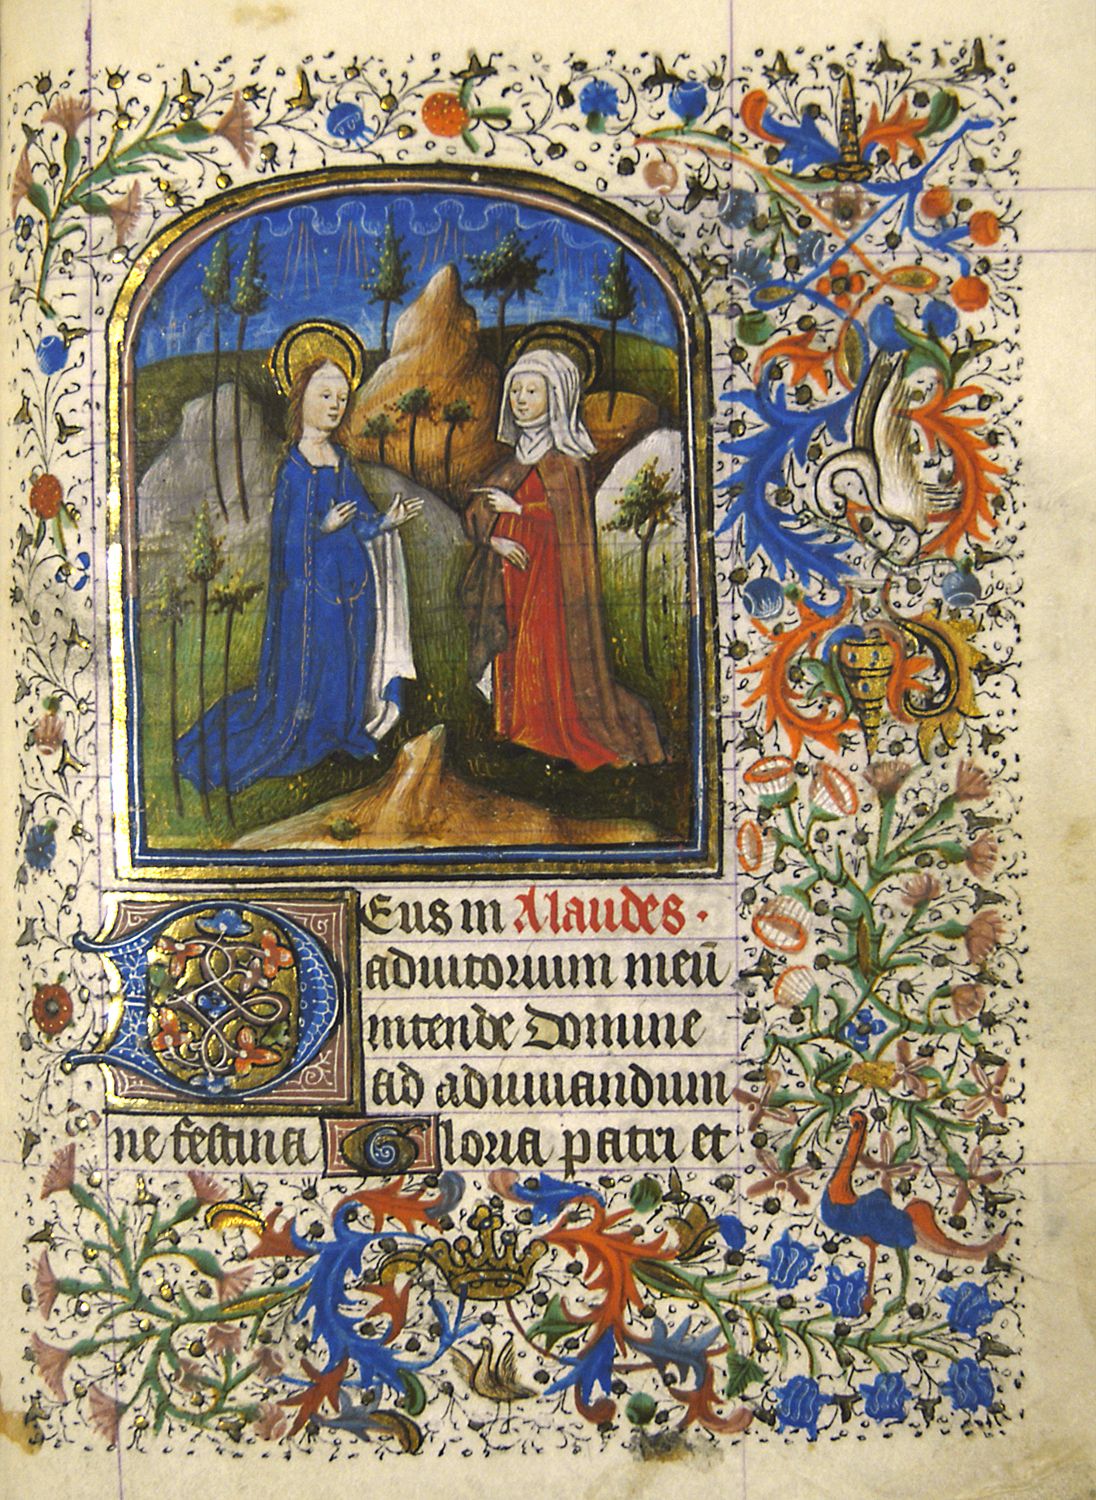 Deus in A laudes.
adiutorium meū
intende Domine
ad adiuuandum
me festina Gloria patri et